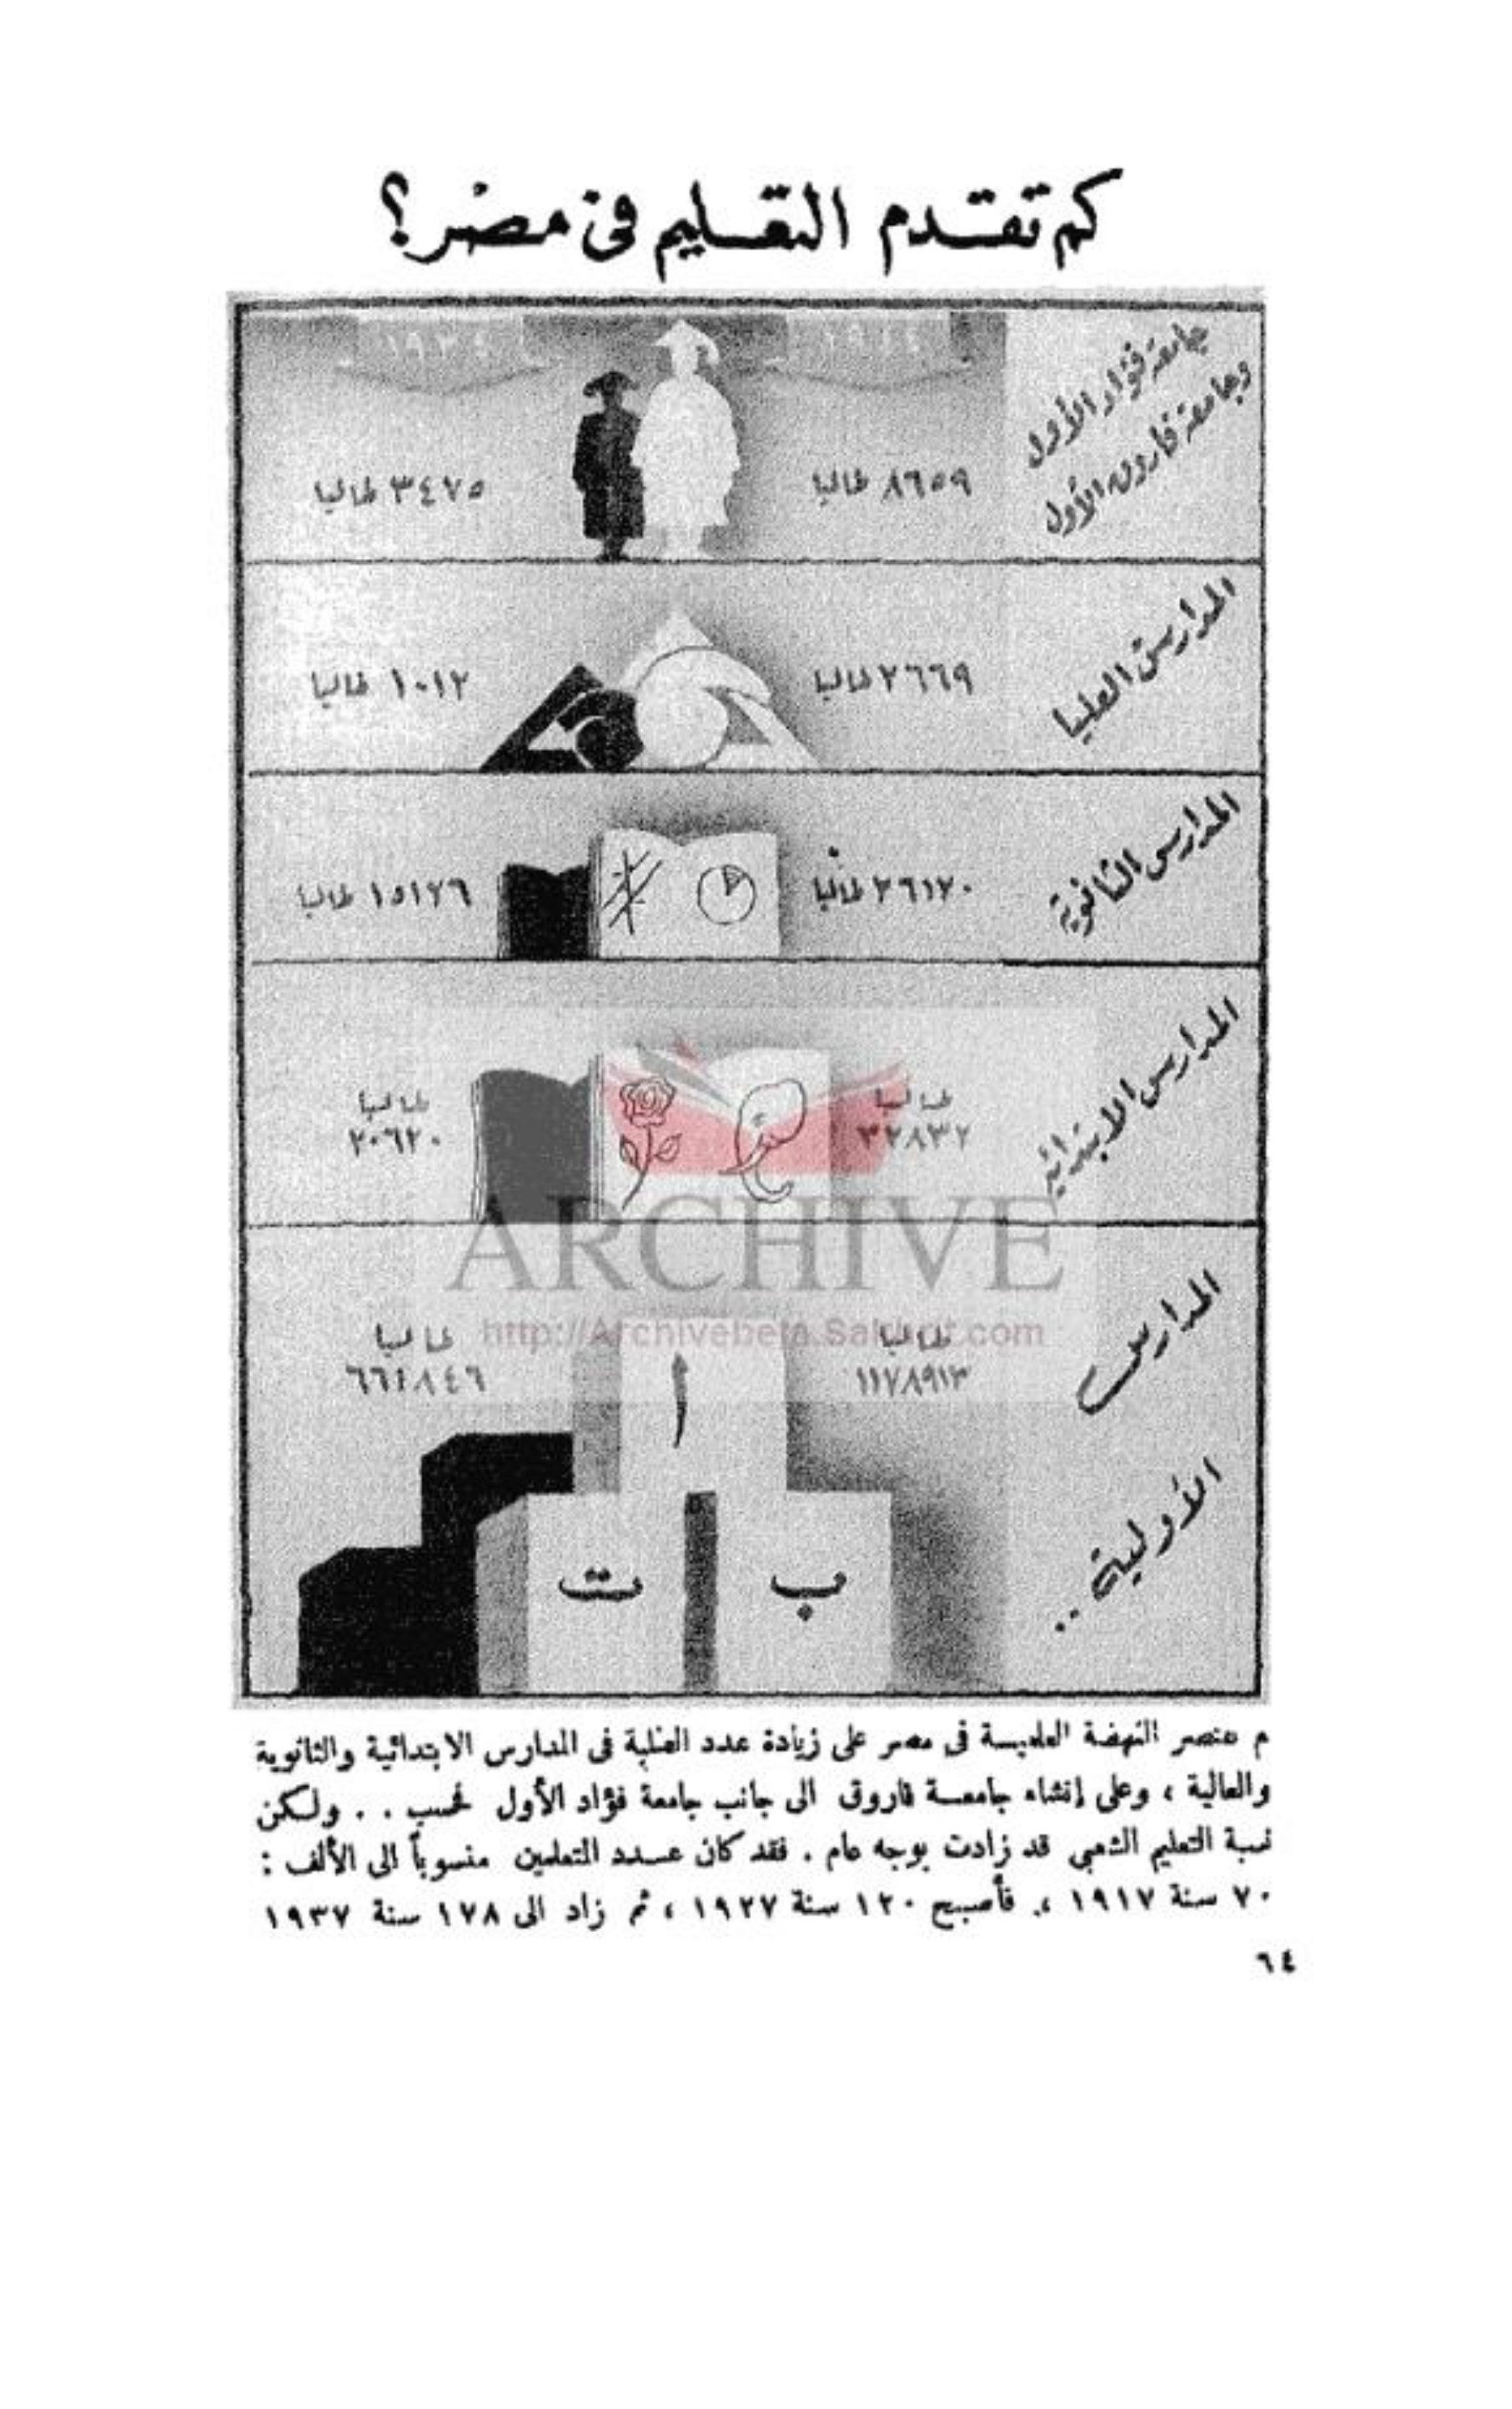 كم تقدم التعليم في مصر؟
١٩٤٤
١٩٣٤
جامعة فؤاد الأول
وجامعة فاروق الأول
٨٦٥٩ طالبا
٣٤٧٥ طالبا
المدارس العليا
٢٦٦٩ طالبا
١٠١٢ طالبا
المدارس الثانوية
٢٦١٢٠ طالبا
١٥١٢٦ طالبا
المدارس الابتدائية
طالبا
٣٢٨٣٢
طالبا
٢٠٦٢٠
ARCHIVE
http://Archivebeta.Sakhrit.com
المدارس
الأولية ..
طالبا
١١٧٨٩١٣
طالبا
ا
ت
ب
لم تقتصر النهضة العلمية في مصر على زيادة عدد الطلبة في المدارس الابتدائية والثانوية
والعالية ، وعلى إنشاء جامعة فاروق الى جانب جامعة فؤاد الأول فحسب . . ولكن
نسبة التعليم الشعبي قد زادت بوجه عام . فقد كان عدد المتعلمين منسوباً الى الألف :
٧٠ سنة ١٩١٧ ، فأصبح ١٢٠ سنة ١٩٢٧ ، ثم زاد الى ١٧٨ سنة ١٩٣٧
٦٤